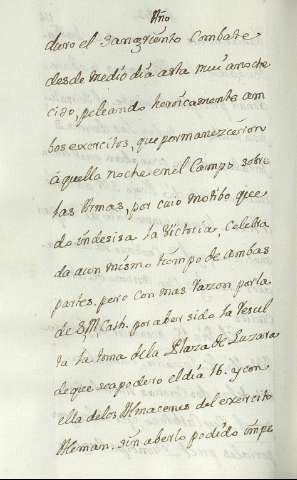 Año
duro el sangriento Combate
desde medio dia asta mui anoche
cido, peleando heroicamente am
bos exorcitos, que permanezieron
aquella noche en el Campo sobre
las Armas, por cuio motibo que
do indesisa la Victoria, Celebra
da a un mismo tiempo de ambas
partes, pero con mas razon por la
de S.M. Cath. por aber sido la resul
ta la toma de la Plaza de Luzara
de que se apodero el día 16. y con
ella de los Almacenes del exercito
Aleman, sin aberlo podido impe